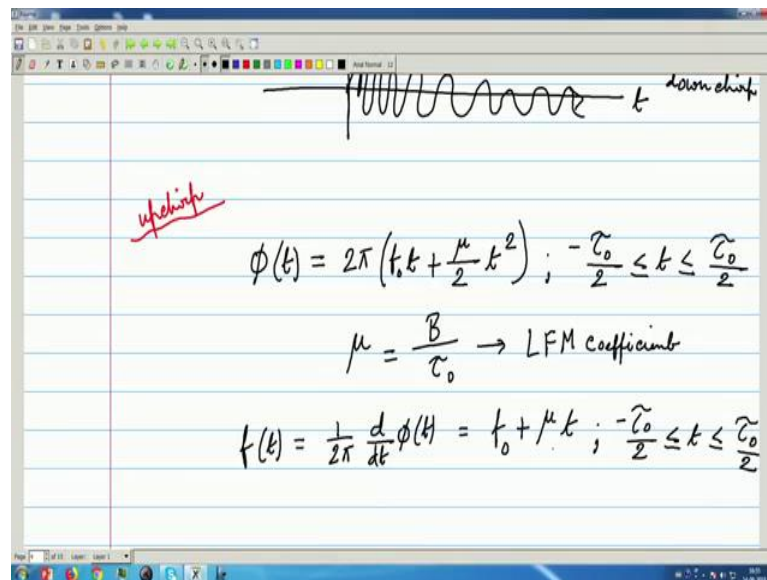 File Edit View Page Tools Options Help
t down chirp
upchirp
φ(t) = 2π(f₀t + μ/2 t²) ; -τ₀/2 ≤ t ≤ τ₀/2
μ = B/τ₀ → LFM coefficient
f(t) = 1/2π d/dt φ(t) = f₀ + μt ; -τ₀/2 ≤ t ≤ τ₀/2